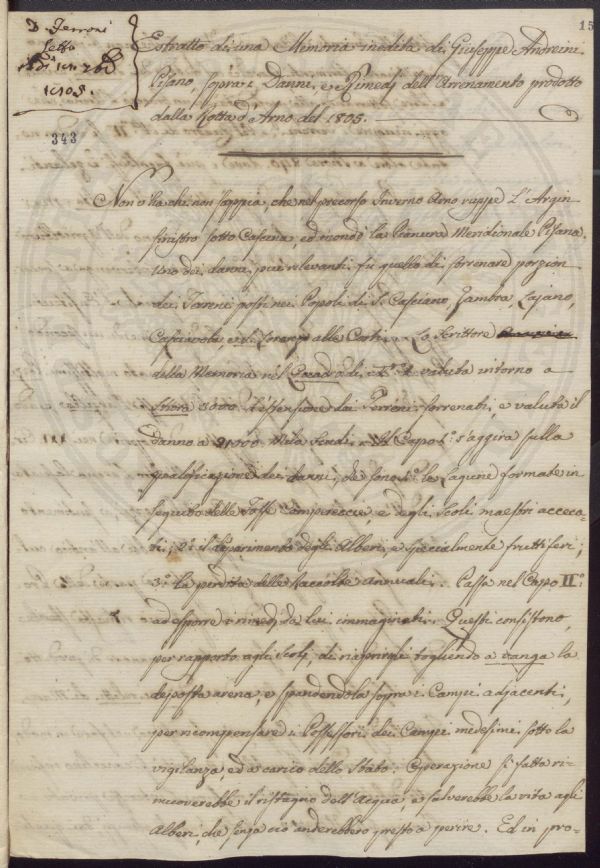 15
D. Ferroni
Letto
1805.
343
Estratto di una Memoria inedita di Giuseppe Andreini
Pisano, sopra i Danni, e i Rimedj dell'Arrenamento prodotto
dalla Rotta d'Arno del 1805.
Non v'ha chi non sappia, che nel precorso Inverno Arno ruppe l'Argin
sinistro sotto Cascina, ed inondò la Pianura Meridionale Pisana.
Uno dei danni più rilevanti fù quello di sorrenare porzion
dei Terreni posti nei Popoli di S. Casciano, Zambra, Lajano,
Casciavola, e S. Lorenzo alle Corti. Lo Scrittore
della Memoria nel valuta intorno a
Stiora 3000 l'estensione dai Terreni sorrenati, e valuta il
danno a Mila Scudi. Il Capo I.º s'aggira sulla
qualificazione dei danni, che sono 1.º le Lagune formate in
seguito delle Fosse Campereccie, e degli Scoli maestri acceca-
ti; 2.º il deperimento degli Alberi, e specialmente fruttiferi;
3.º la perdita delle Raccolte annuali. Passa nel Capo II.º
ad esporre i rimedj da lui immaginati. Questi consistono,
per rapporto agli scoli, di riaprirli togliendo a vanga la
deposta arena, e spandendola sopra i Campi adjacenti,
per ricompensare i Possessori dei Campi medesimi sotto la
vigilanza, ed a carico dello Stato. Operazione sì fatta ri-
muoverebbe il ristagno dell'Acqua, e salverebbe la vita agli
Alberi, che senza ciò anderebbero presto a perire. Ed in pro-